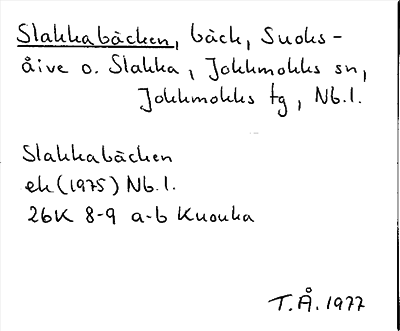 Slakkabäcken, bäck, Suoks-
åive o. Slakka, Jokkmokks sn,
Jokkmokks tg, Nb.l.
Slakkabäcken
ek (1975) Nb.l.
26K 8-9 a-b Kuouka
T.Å. 1977